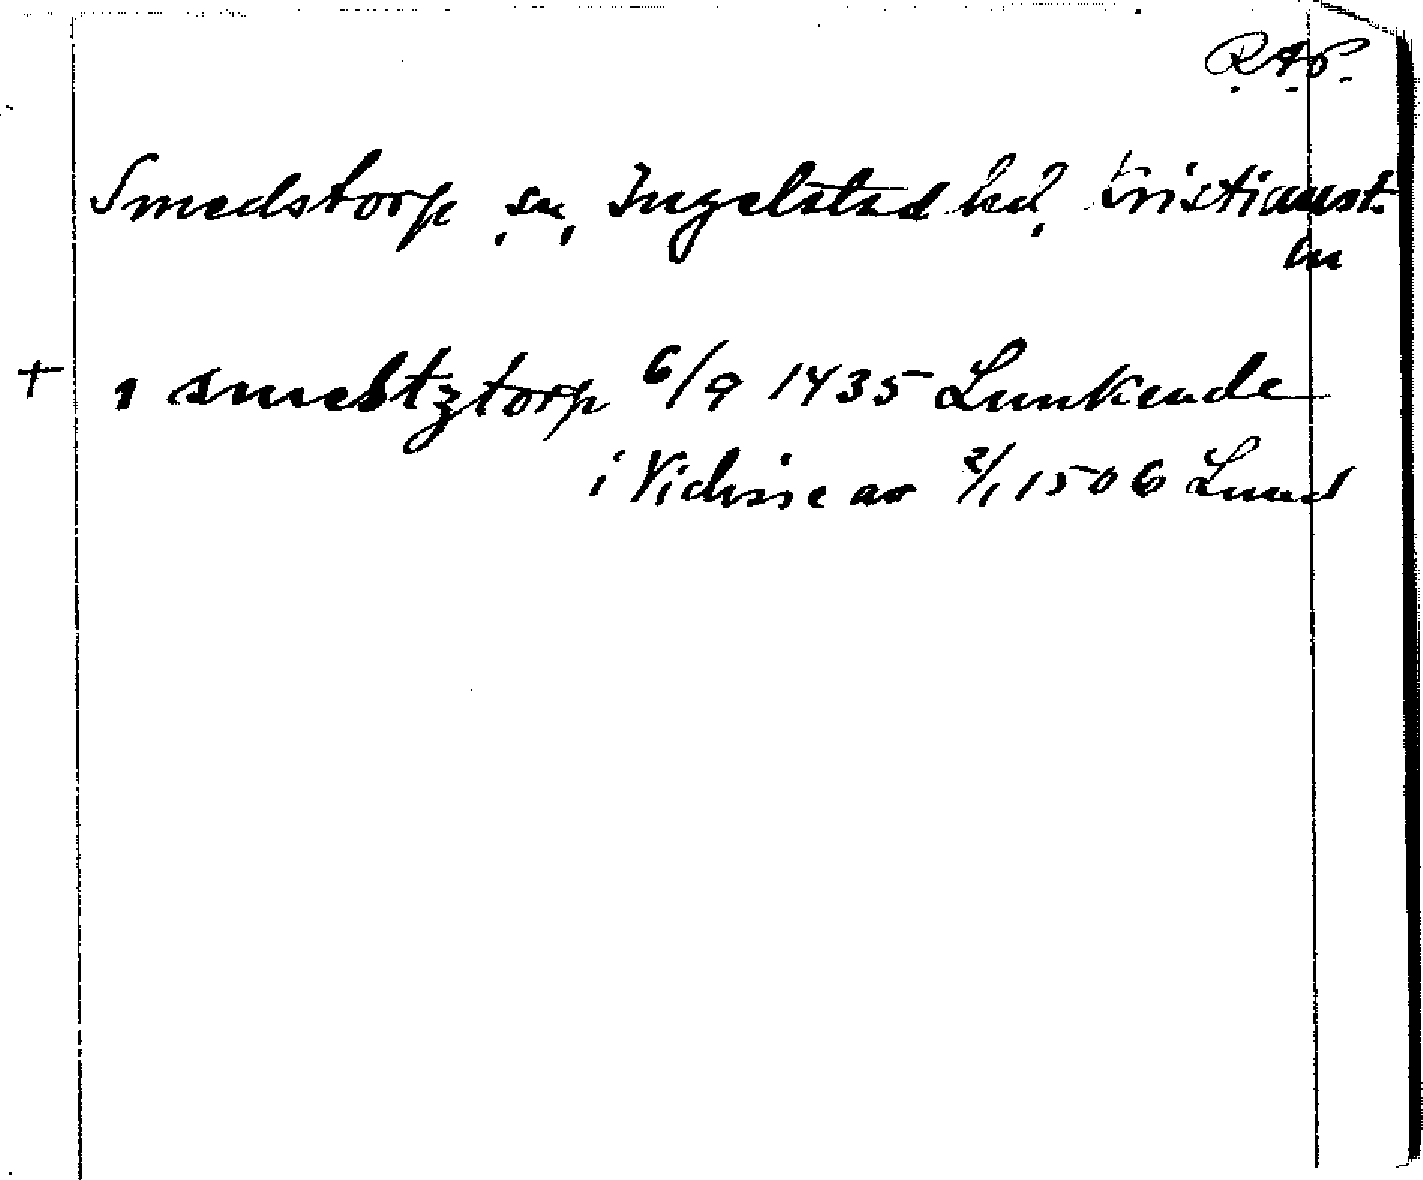 R.A.P.
Smedstorp, sn, Ingelstad hd, Kristianst.
ln
+ ı smebtztorp 6/9 1435 Lunkende
i Vidisse av 2/1 1506 Lund